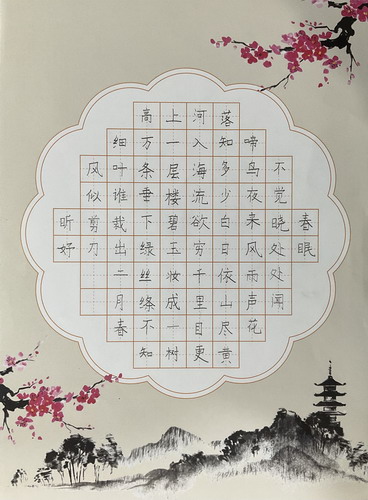 春眠
不觉晓处处闻
啼鸟夜来风雨声花
落知多少白日依山尽黄
河入海流欲穷千里目更
上一层楼碧玉妆成一树
高万条垂下绿丝绦不知
细叶谁裁出二月春
风似剪刀
昕妤